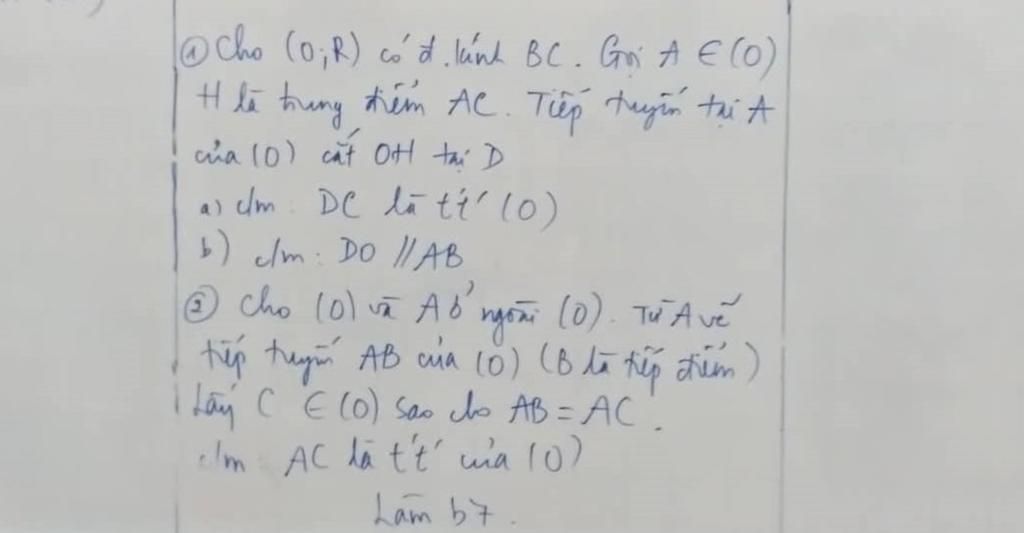 ① Cho (O;R) có đ.kính BC. Gọi A ∈ (O)
H là trung điểm AC. Tiếp tuyến tại A
của (O) cắt OH tại D
a) c/m: DC là tt' (O)
b) c/m: DO // AB
② Cho (O) và A ở ngoài (O). Từ A vẽ
tiếp tuyến AB của (O) (B là tiếp điểm)
Lấy C ∈ (O) sao cho AB = AC.
c/m AC là t't' của (O)
Làm b7.